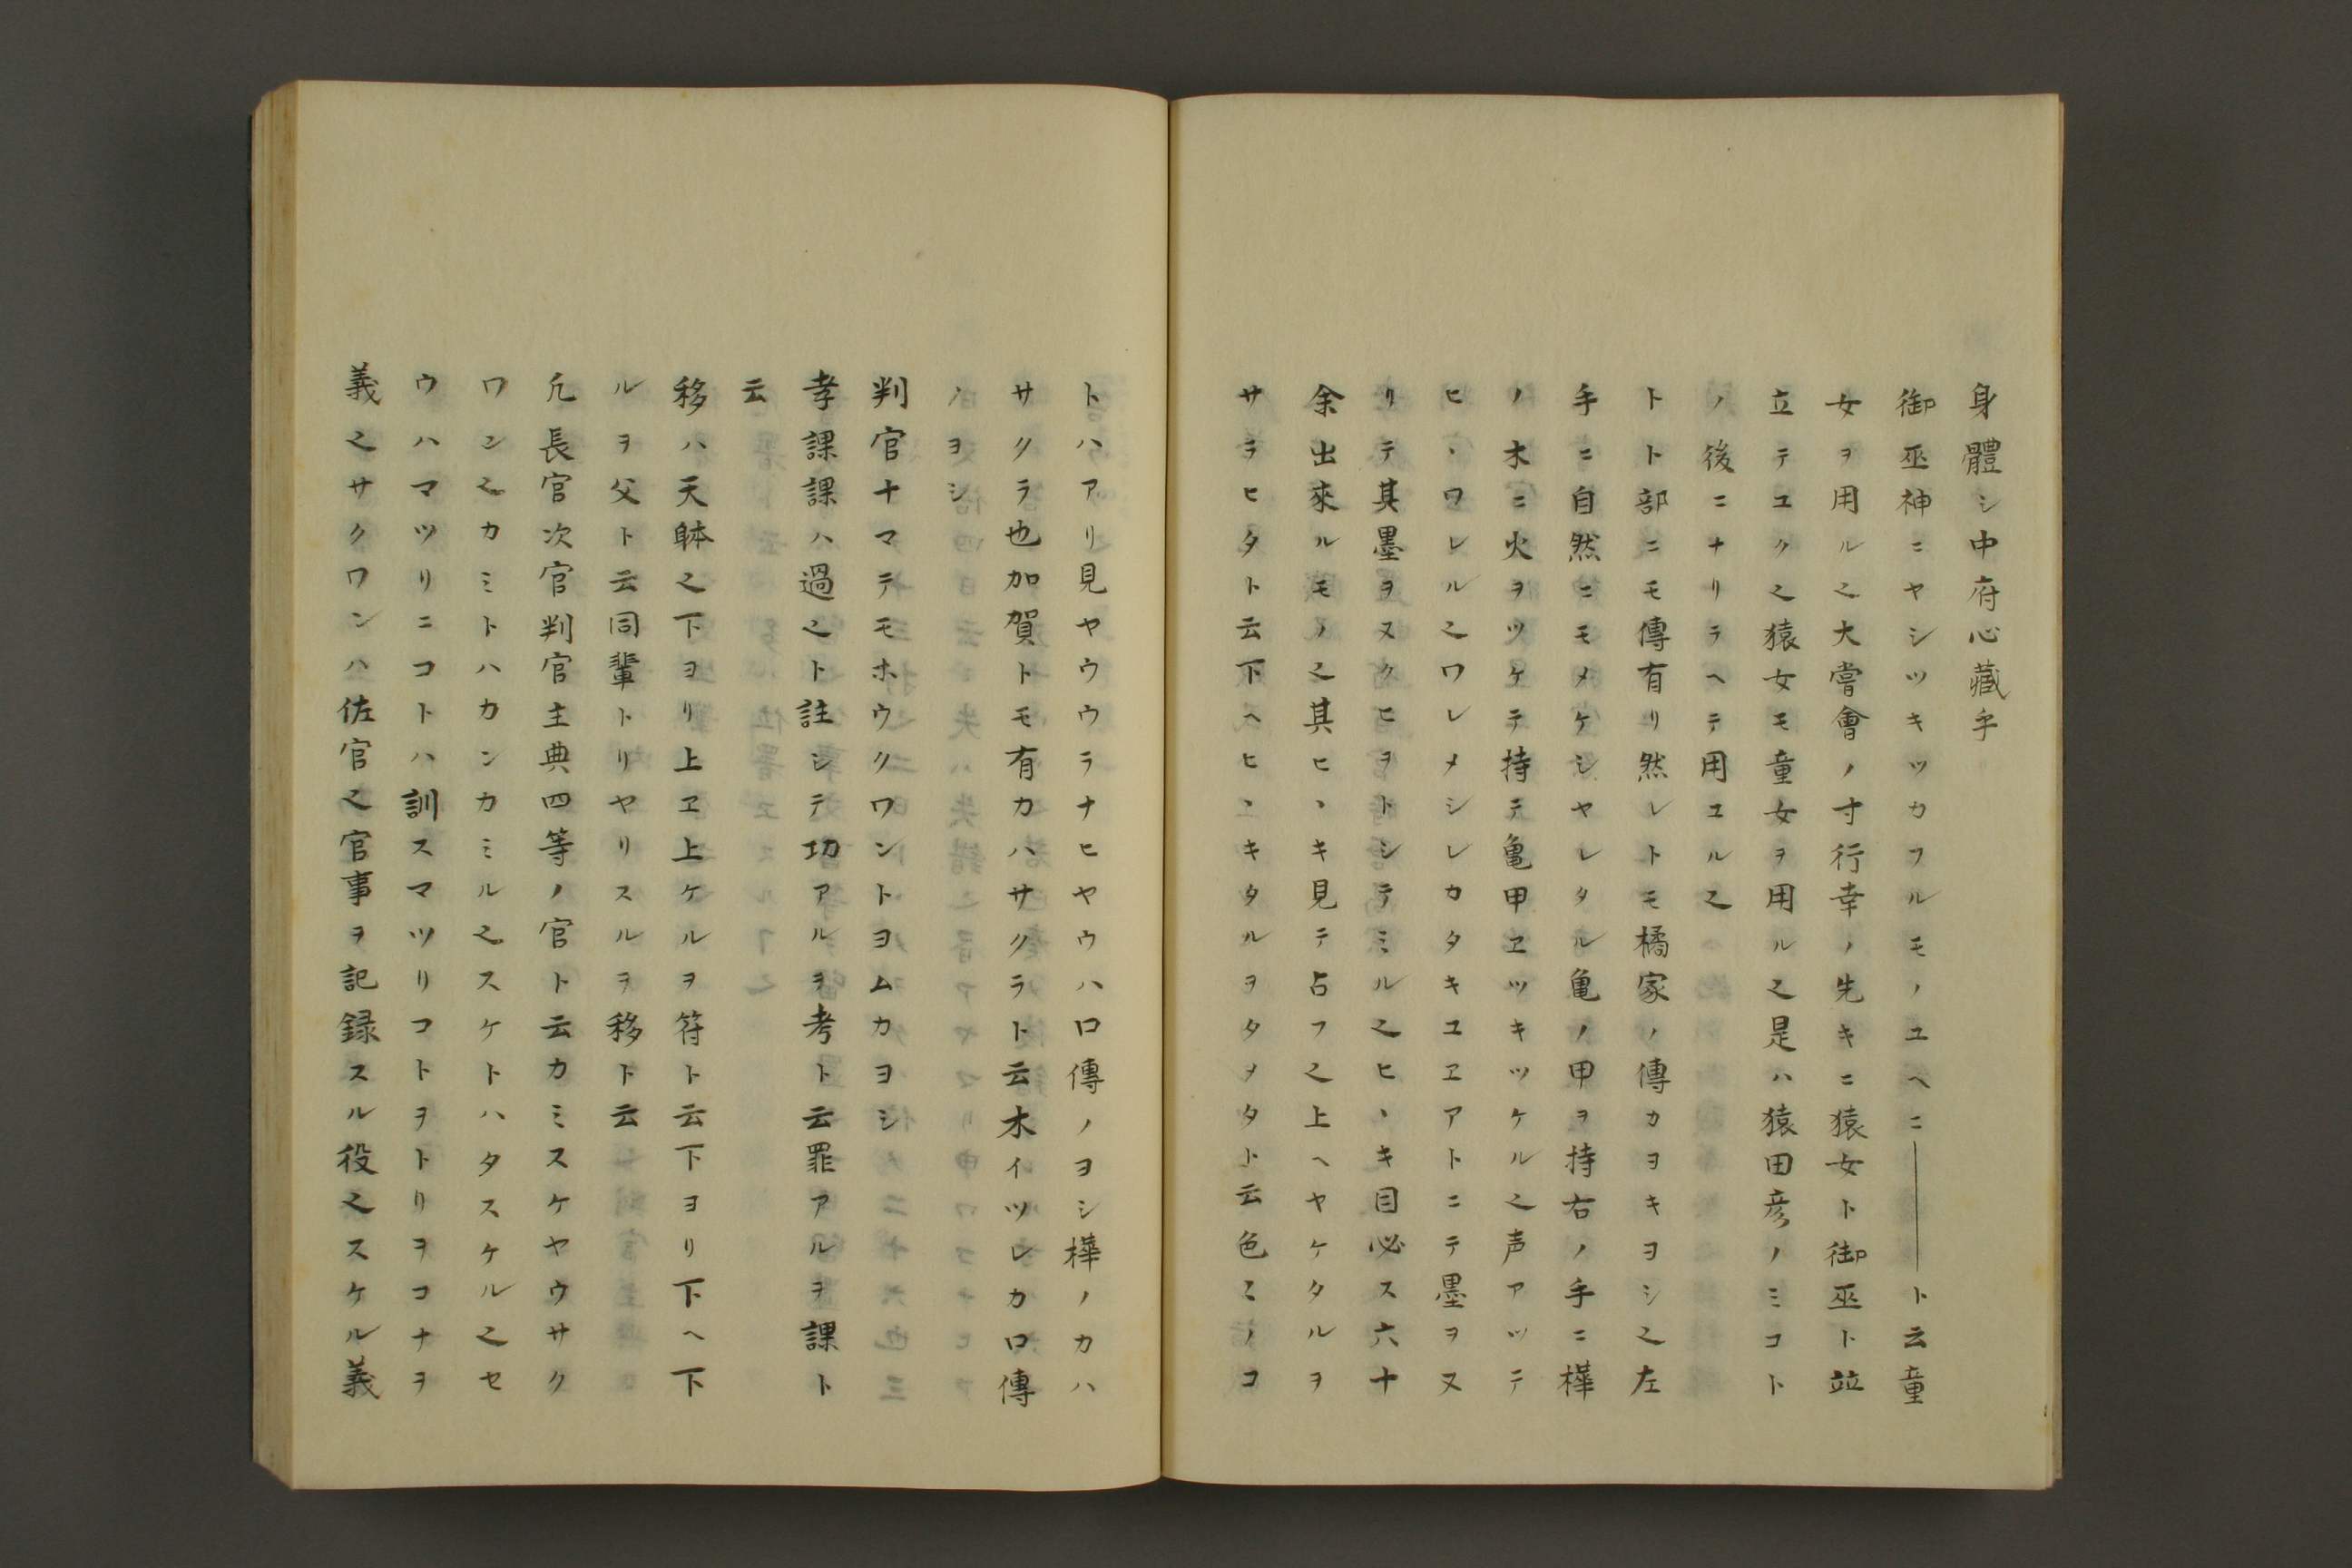 身體シ中府心藏乎
御巫神ニヤシツキツカフルモノユヘニ――ト云童
女ヲ用ル之大嘗會ノ寸行幸ノ先キニ猿女ト御巫ト竝
立テユク之猿女モ童女ヲ用ル之是ハ猿田彦ノミコト
ノ後ニナリラヘテ用ユル之
トト部ニモ傳有リ然レトモ橘家ノ傳カヨキヨシ之左
手ニ自然ニモメケシヤレタル亀ノ甲ヲ持右ノ手ニ樺
ノ木ニ火ヲツケテ持テ亀甲ヱツキツケル之声アッテ
ヒヽワレル之ワレメシレカタキユヱアトニテ墨ヲヌ
リテ其墨ヲヌクヒヲトシテミル之ヒヽキ目必ス六十
余出來ルモノ之其ヒヽキ見テ占フ之上ヘヤケタルヲ
サラヒタト云下ヘヒヽキタルヲタヲタト云色〻ノコ
トハアリ見ヤウウラナヒヤウハ口傳ノヨシ樺ノカハ
サクラ也加賀トモ有カハサクラト云木イツレカ口傳
ノヨシ
判官十マテモホウクワントヨムカヨシ
孝課課ハ過之ト註シテ功アルヲ考ト云罪アルヲ課ト
云
移ハ天躰之下ヨリ上ヱ上ケルヲ符ト云下ヨリ下ヘ下
ルヲ父ト云同輩トリヤリスルヲ移ト云
凢長官次官判官主典四等ノ官ト云カミスケヤウサク
ワン之カミトハカンカミル之スケトハタスケル之セ
ウハマツリニコトハ訓スマツリコトヲトリヲコナヲ
義之サクワンハ佐官之官事ヲ記録スル役之スケル義